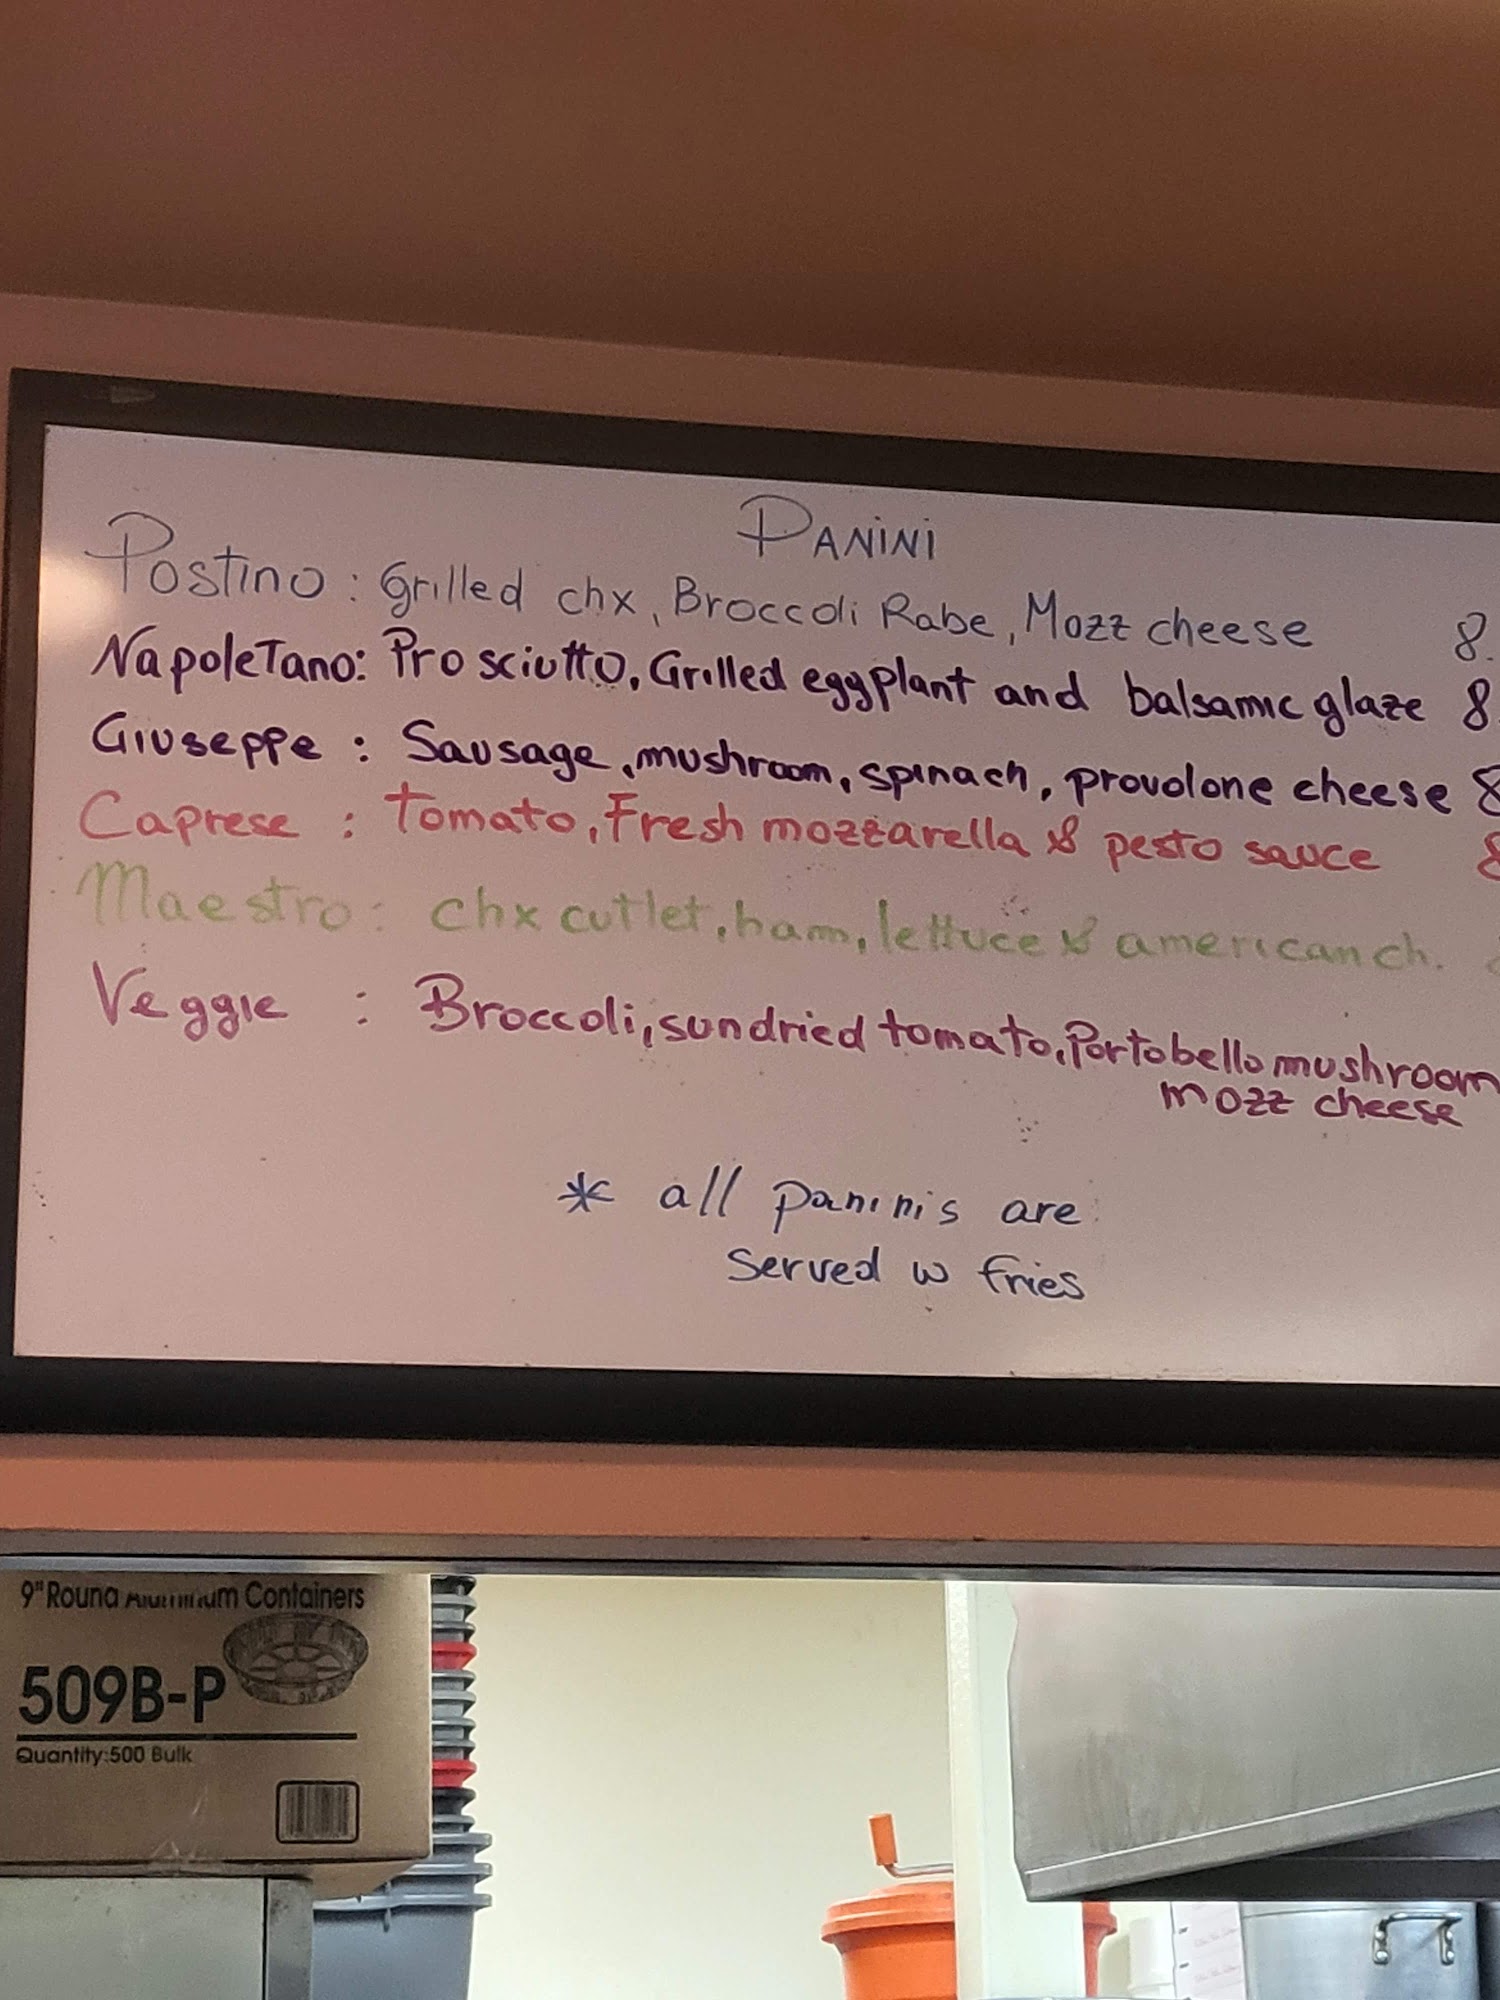 PANINI
Postino : Grilled chx, Broccoli Rabe, Mozz cheese 8.
Napoletano: Prosciutto, Grilled eggplant and balsamic glaze 8.
Giuseppe : Sausage, mushroom, spinach, provolone cheese 8
Caprese : Tomato, Fresh mozzarella & pesto sauce 8
Maestro : chx cutlet, ham, lettuce & american ch.
Veggie : Broccoli, sundried tomato, Portobello mushroom
mozz cheese
* all paninis are
served w fries
9" Round Aluminum Containers
509B-P
Quantity:500 Bulk